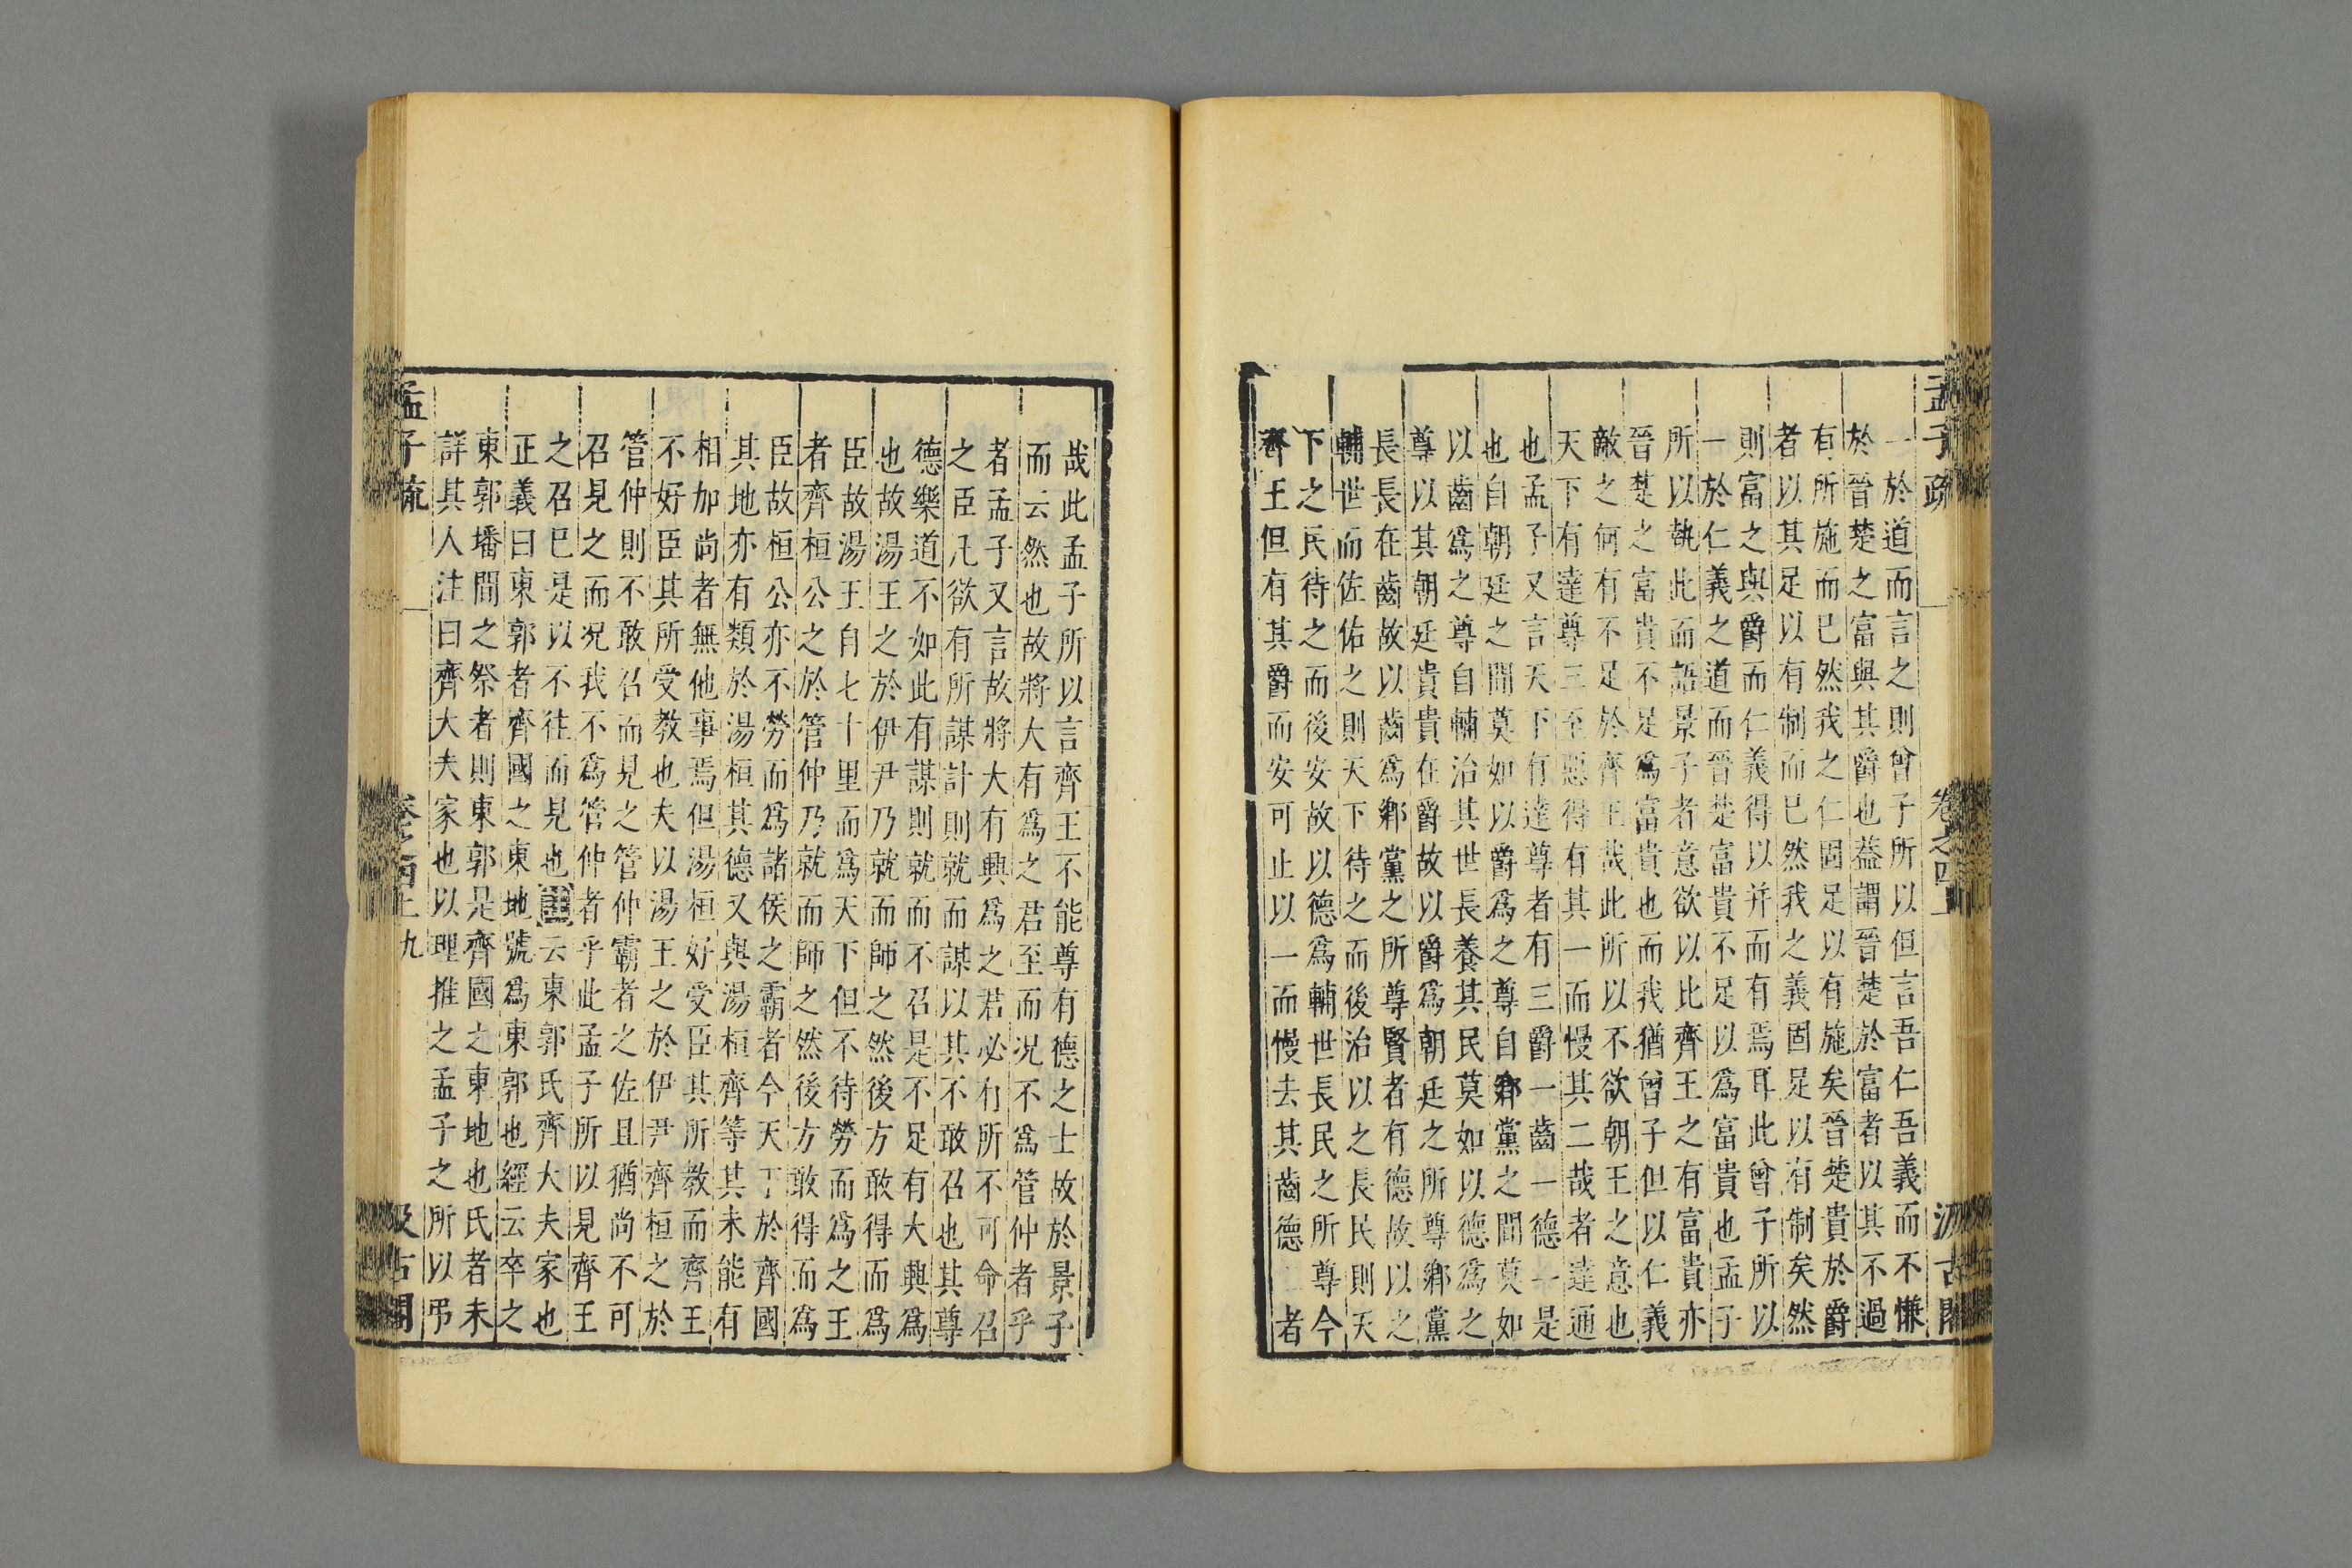 孟子疏 卷之四上 汲古閣
一於道而言之則曾子所以但言吾仁吾義而不慊
於晉楚之富與其爵也葢謂晉楚於富者以其不過
有所施而巳然我之仁固足以有施矣晉楚貴於爵
者以其足以有制而巳然我之義固足以有制矣然
則富之與爵而仁義得以并而有焉耳此曾子所以
一於仁義之道而晉楚富貴不足以爲富貴也孟子
所以執此而語景子者意欲以比齊王之有富貴亦
晉楚之富貴不足爲富貴也而我猶曾子但以仁義
敵之何有不足於齊王哉此所以不欲朝王之意也
天下有達尊三至惡得有其一而慢其二哉者達通
也孟子又言天下有達尊者有三爵一齒一德一是
也自朝廷之間莫如以爵爲之尊自鄉黨之間莫如
以齒爲之尊自輔治其世長養其民莫如以德爲之
尊以其朝廷貴貴在爵故以爵爲朝廷之所尊鄉黨
長長在齒故以齒爲鄉黨之所尊賢者有德故以之
輔世而佐佑之則天下待之而後治以之長民則天
下之民待之而後安故以德爲輔世長民之所尊今
齊王但有其爵而安可止以一而慢去其齒德二者
哉此孟子所以言齊王不能尊有德之士故於景子
而云然也故將大有爲之君至而况不爲管仲者乎
者孟子又言故將大有興爲之君必有所不可命召
之臣凡欲有所謀計則就而謀以其不敢召也其尊
德樂道不如此有謀則就而不召是不足有大興爲
也故湯王之於伊尹乃就而師之然後方敢得而爲
臣故湯王自七十里而爲天下但不待勞而爲之王
者齊桓公之於管仲乃就而師之然後方敢得而爲
臣故桓公亦不勞而爲諸侯之霸者今天下於齊國
其地亦有類於湯桓其德又與湯桓齊等其未能有
相加尚者無他事焉但湯桓好受臣其所教而齊王
不好臣其所受教也夫以湯王之於伊尹齊桓之於
管仲則不敢召而見之管仲霸者之佐且猶尚不可
召見之而况我不爲管仲者乎此孟子所以見齊王
之召巳是以不往而見也注云東郭氏齊大夫家也
正義曰東郭者齊國之東地號爲東郭也經云卒之
東郭墦間之祭者則東郭是齊國之東地也氏者未
詳其人注曰齊大夫家也以理推之孟子之所以弔
孟子疏 卷之四上 九 汲古閣